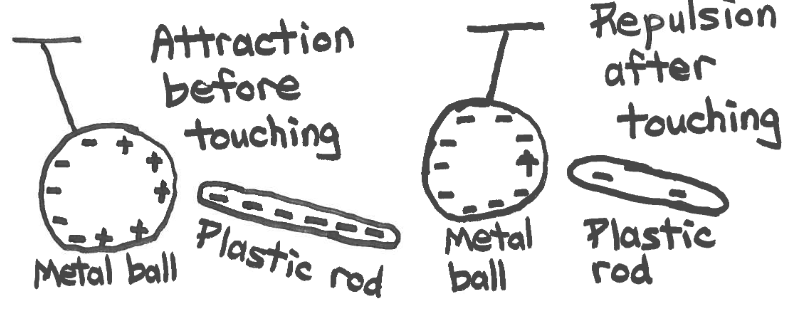 Attraction
before
touching
Metal ball
Plastic rod
Repulsion
after
touching
Metal
ball
Plastic
rod